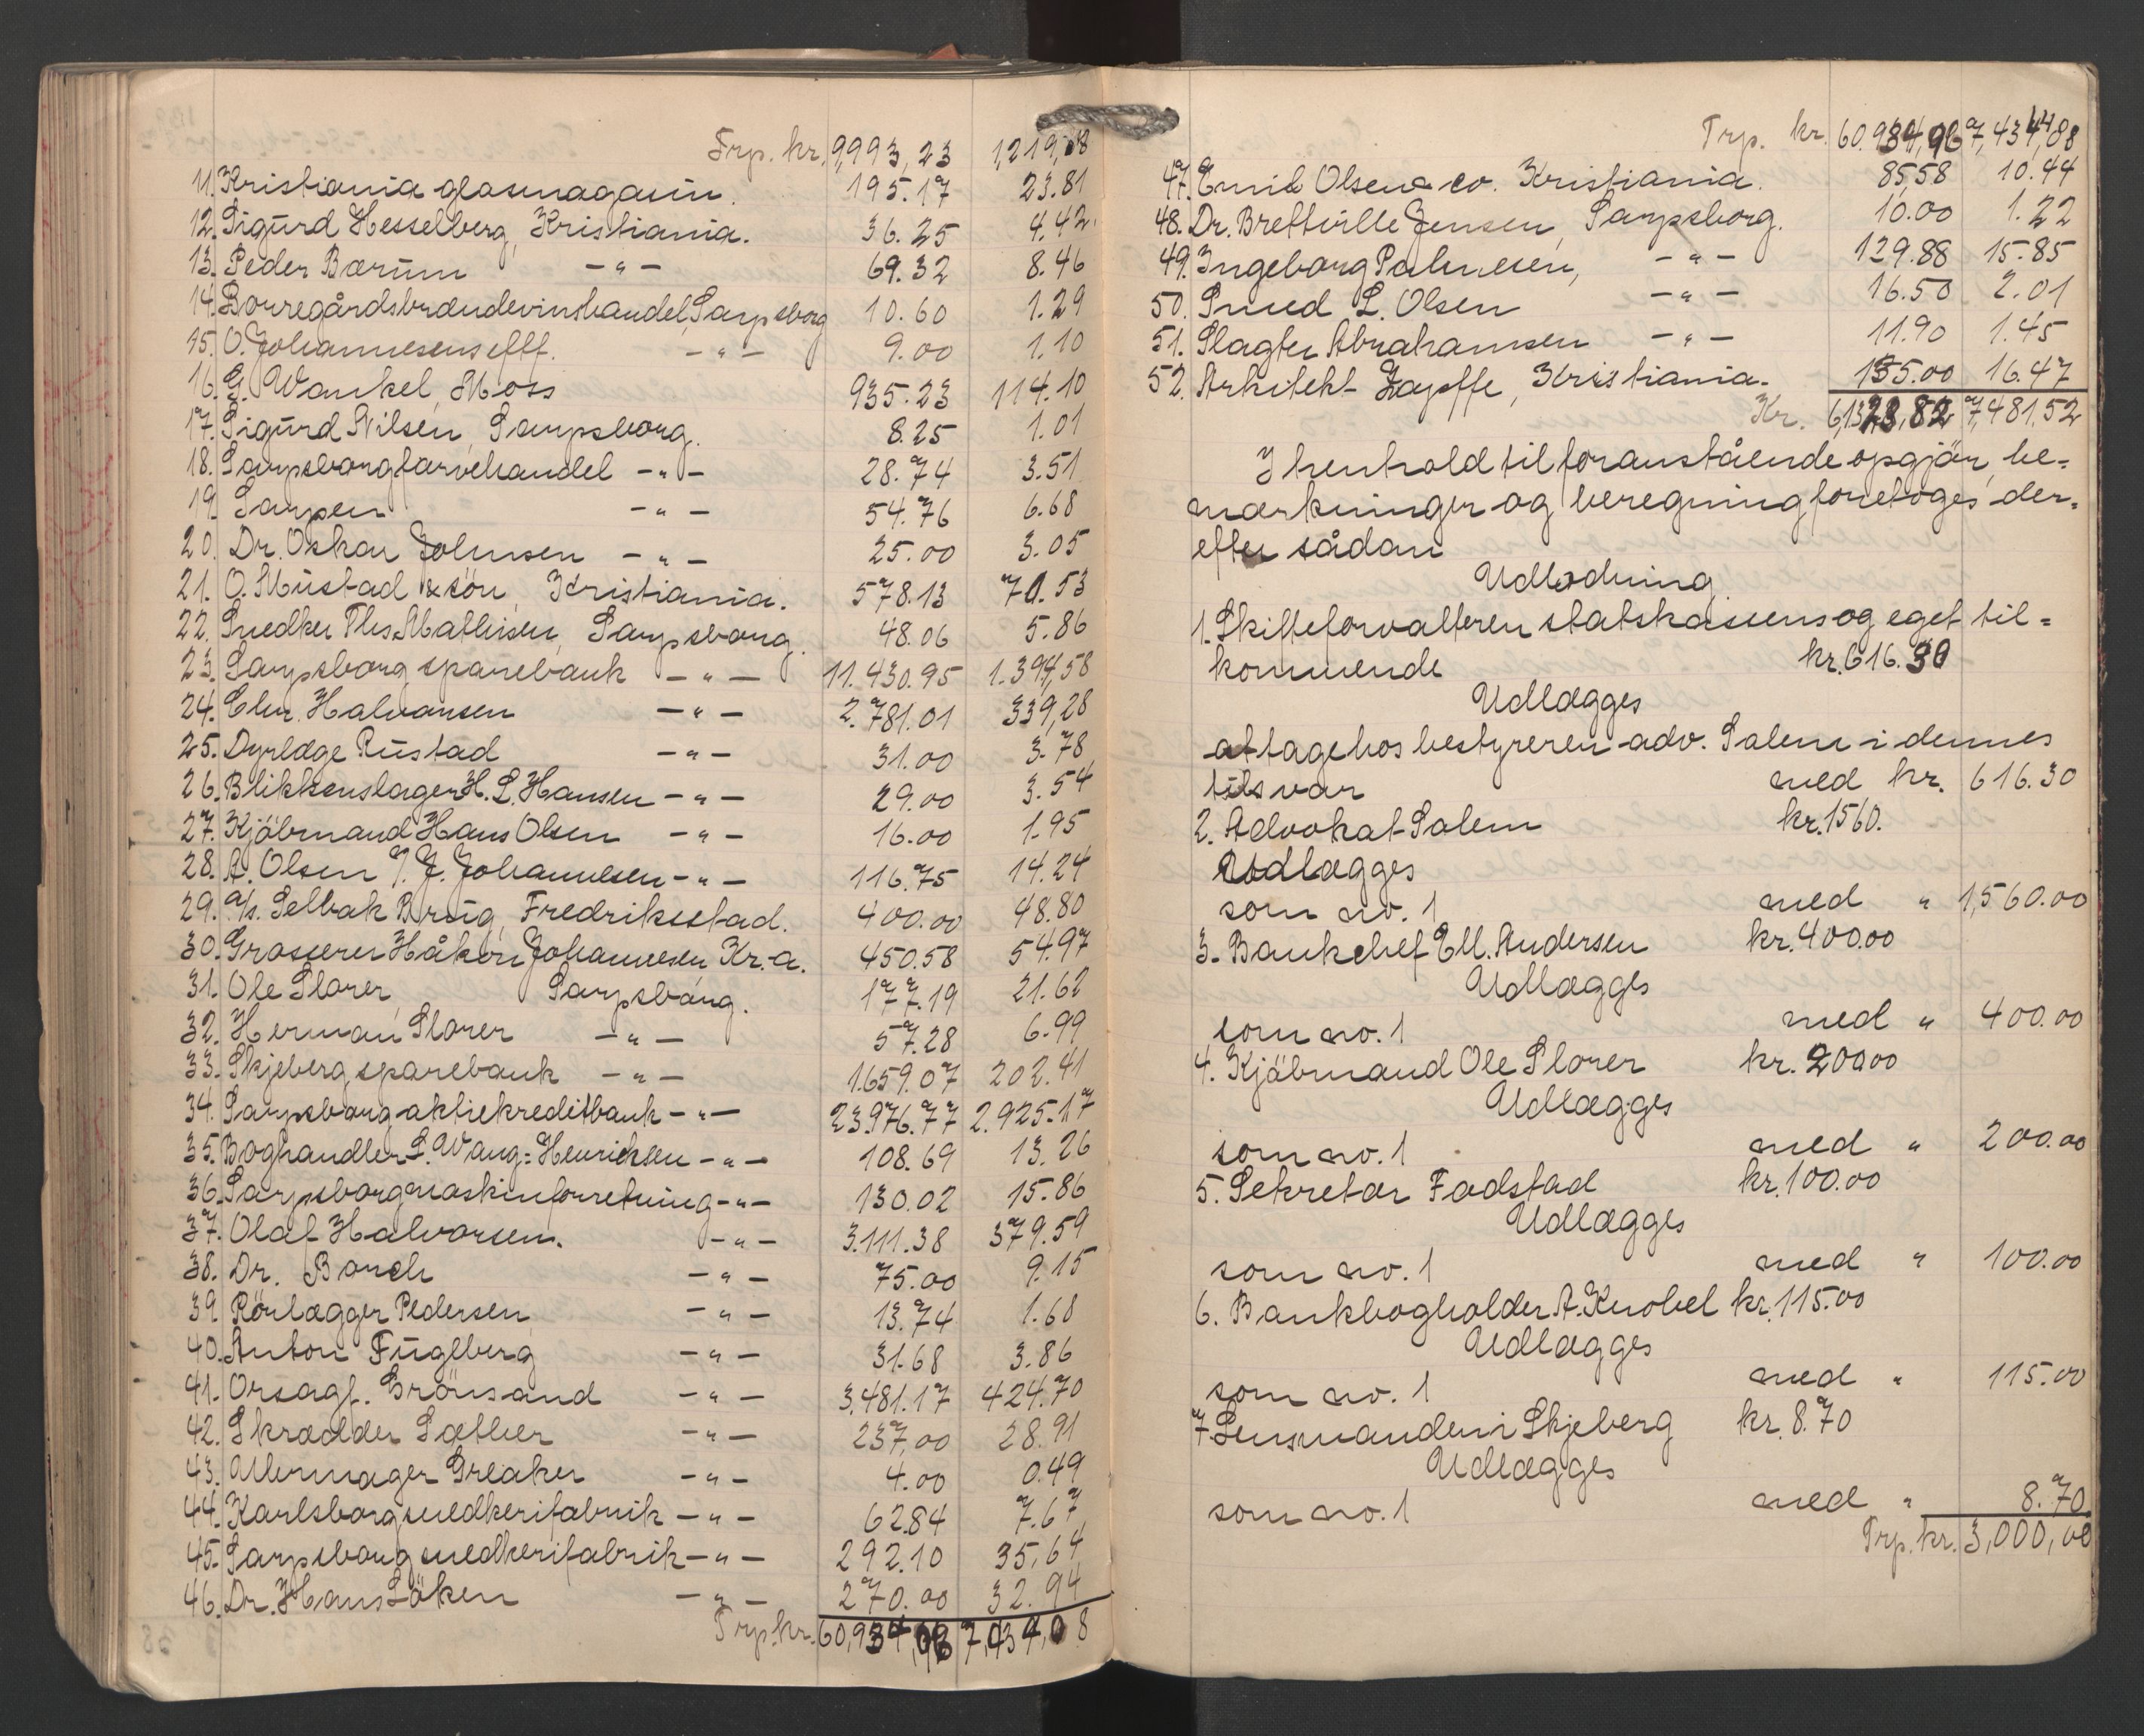 Trp. kr. 9,993,23 1,219,08
11. Kristiania glasmagasin. 195.17 23.81
12. Sigurd Hesselberg, Kristiania. 36.25 4.42
13. Peder Bærum —"— 69.32 8.46
14. Borregårdsbrændevinshandel, Sarpsborg 10.60 1.29
15. O. Johannesens efff. —"— 9.00 1.10
16. G. Wankel, Moss 935.23 114.10
17. Sigurd Nilsen, Sarpsborg. 8.25 1.01
18. Sarpsborg farvehandel —"— 28.74 3.51
19. Sarpen —"— 54.76 6.68
20. Dr. Oskar Johnsen —"— 25.00 3.05
21. O. Mustad & sön, Kristiania. 578.13 70.53
22. Snedker Ths. Mathisen, Sarpsborg. 48.06 5.86
23. Sarpsborg sparebank —"— 11.430.95 1.394,58
24. Chr. Halvorsen —"— 2.781.01 339,28
25. Dyrlæge Rustad —"— 31.00 3.78
26. Blikkenslager H. L. Hansen —"— 29.00 3.54
27. Kjöbmand Hans Olsen —"— 16.00 1.95
28. A. Olsen J. J. Johannesen —"— 116.75 14.24
29. A/s. Selbak Brug, Fredriksstad. 400.00 48.80
30. Grosserer Håkon Johannesen Kr.-a. 450.58 54.97
31. Ole Slorer, Sarpsborg. 177.19 21.62
32. Herman Slorer —"— 57.28 6.99
33. Skjeberg sparebank —"— 1.659.07 202.41
34. Sarpsborg aktiekreditbank —"— 23.976.77 2.925.17
35. Boghandler L. Wang=Henriksen —"— 108.69 13.26
36. Sarpsborg maskinforretning —"— 130.02 15.86
37. Olaf Halvorsen. —"— 3.111.38 379.59
38. Dr. Borch —"— 75.00 9.15
39. Rörlægger Pedersen —"— 13.74 1.68
40. Anton Fuglberg —"— 31.68 3.86
41. Orsagf. Grönsand —"— 3,481.17 424.70
42. Skrædder Sæther —"— 237,00 28.91
43. Uhrmager Greaker —"— 4.00 0.49
44. Karlsborg snedkerifabrik —"— 62.84 7.67
45. Sarpsborg snedkerifabrik —"— 292.10 35,64
46. Dr. Hans Löken —"— 270.00 32.94
Trp. kr. 60,934,96 7,434,08
Trp. kr. 60.934,96 7,434,08
47. Emil Olsen & co. Kristiania. 85,58 10.44
48. Dr. Brettville Jensen, Sarpsborg. 10.00 1.22
49. Ingeborg Palmesen, —"— 129.88 15.85
50. Smed L. Olsen —"— 16.50 2.01
51. Slagter Abrahamsen —"— 11.90 1.45
52. Arkitekt Zapffe, Kristiania. 135.00 16.47
Kr. 61,323,82 7,481,52
I henhold til foranstående opgjör, be=
mærkninger og beregning foretoges der=
efter sådan
Udlodning.
1. Skifteforvalteren statskassens og eget til=
kommende kr. 616.30
Udlægges
at tage hos bestyreren adv. Salem i dennes
tilsvar med kr. 616.30
2. Advokat Salem kr. 1560.
Udlægges
som no. 1 med " 1,560.00
3. Bankchef Ell. Andersen kr. 400.00
Udlægges
som no. 1 med " 400.00
4. Kjöbmand Ole Slorer kr. 200.00
Udlægges
som no. 1 med " 200.00
5. Sekretær Fadstad kr. 100.00
Udlægges
som no. 1 med " 100.00
6. Bankbogholder A. Knobel kr. 115.00
Udlægges
som no. 1 med " 115.00
7. Lensmanden i Skjeberg kr. 8.70
Udlægges
som no. 1 med " 8.70
Trp. kr. 3,000,00